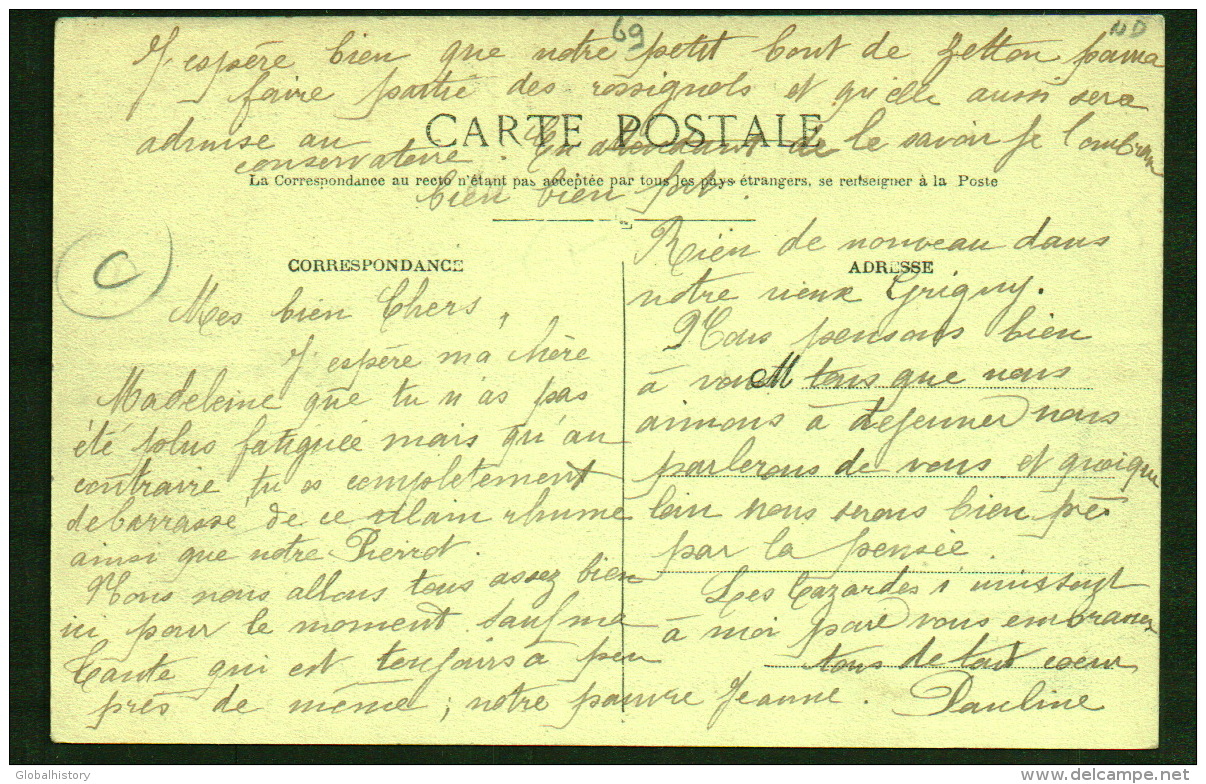 69
ND
J'espère bien que notre petit bout de
faire partie des rossignols et qu'elle aussi sera
admise au
CARTE POSTALE
conservatoire. En attendant de le savoir je l'embrasse
La Correspondance au recto n'étant pas acceptée par tous les pays étrangers, se renseigner à la Poste
bien bien fort.
C
CORRESPONDANCE
Mes bien Chers,
J'espère ma chère
Madeleine que tu n'as pas
été plus fatiguée mais qu'au
contraire tu es completement
debarrassé de ce vilain rhume
ainsi que notre Pierrot.
Nous nous allons tous assez bien
ici pour le moment sauf ma
tante qui est toujours à peu
près de même, notre pauvre Jeanne.
Rien de nouveau dans
ADRESSE
notre vieux Grigny.
Nous pensons bien
à vous M tous que nous
aimons à dejeuner nous
parlerons de vous et quoique
loin nous serons bien près
par la pensée.
Les s'unissent
à moi pour vous embrasser
tous de tout coeur
Pauline
Globalhistory
delcampe.net